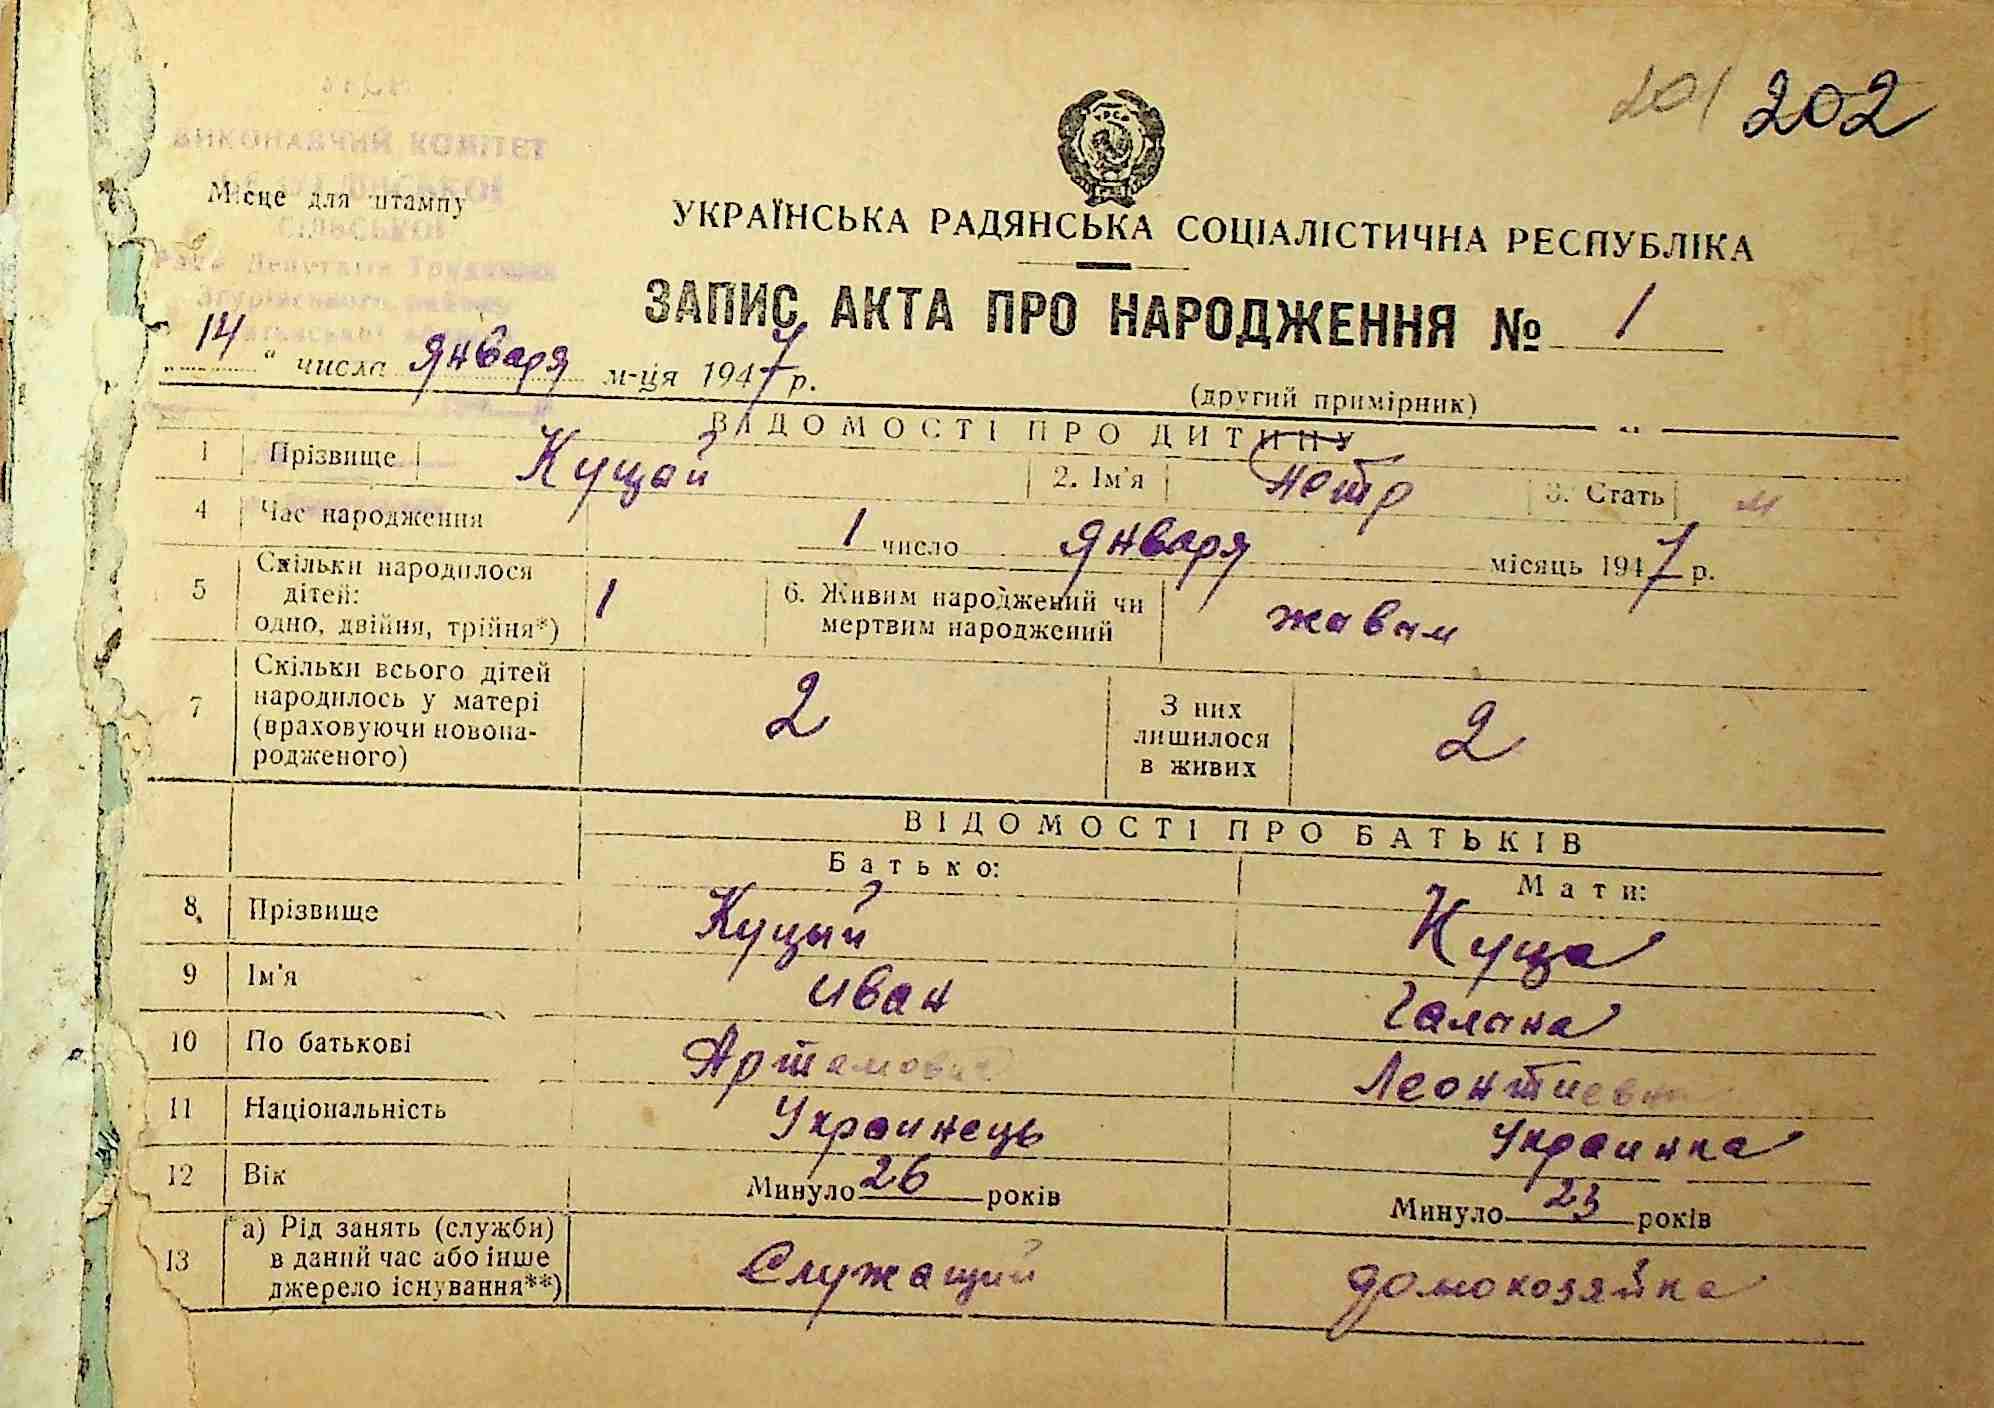 201 202
ВИКОНАВЧИЙ КОМІТЕТ
Місце для штампу
СІЛЬСЬКОЇ
Ради Депутатів Трудящих
Згурівського району
УКРАЇНСЬКА РАДЯНСЬКА СОЦІАЛІСТИЧНА РЕСПУБЛІКА
ЗАПИС АКТА ПРО НАРОДЖЕННЯ № 1
„14“ числа января м-ця 1947 р.
(другий примірник)
ВІДОМОСТІ ПРО ДИТИНУ
1 Прізвище Куцый 2. Ім'я Петр 3. Стать м
4 Час народження 1 число января місяць 1947 р.
5 Скільки народилося дітей: одно, двійня, трійня*) 1 6. Живим народжений чи мертвим народжений живым
7 Скільки всього дітей народилось у матері (враховуючи новонародженого) 2 З них лишилося в живих 2
ВІДОМОСТІ ПРО БАТЬКІВ
Батько: Мати:
8 Прізвище Куцый Куца
9 Ім'я Иван Галина
10 По батькові Артемович Леонтиевна
11 Національність Украинець Украинка
12 Вік Минуло 26 років Минуло 23 років
13 а) Рід занять (служби) в даний час або інше джерело існування**) Служащий домохозяйка